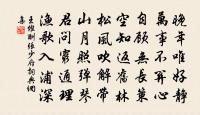 晚年唯好靜
萬事不關心
自顧無長策
空知返舊林
松風吹解帶
山月照彈琴
君問窮通理
漁歌入浦深
王維酬張少府詞典網
集